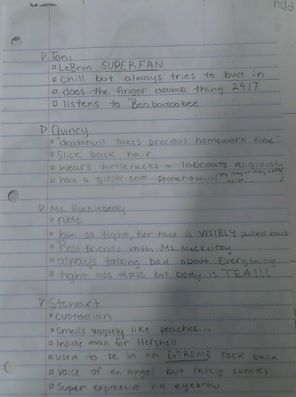 Toni
LeBron SUPERFAN
Chill but always tries to butt in
does the finger drumb thing 24/7
listens to "Beabadoobee"
Quincy
"deodorant takes precious homework time"
Slick back hair
Wears turtlenecks + labcoats religiously
has a girlfriend somehow...
Ms. Huckleberry
rude
bun so tight, her face is VISIBLY pulled back
Best friends with Ms. Mackelroy
always talking bad about Everything
tight ass dress but body is TEA!!!
Stewart
Custodian
Smells vaguely like peaches...
Inside man for Hershell
used to be in an EXTREME rock band
voice of an angel but rarely speaks
Super expressive via eyebrow